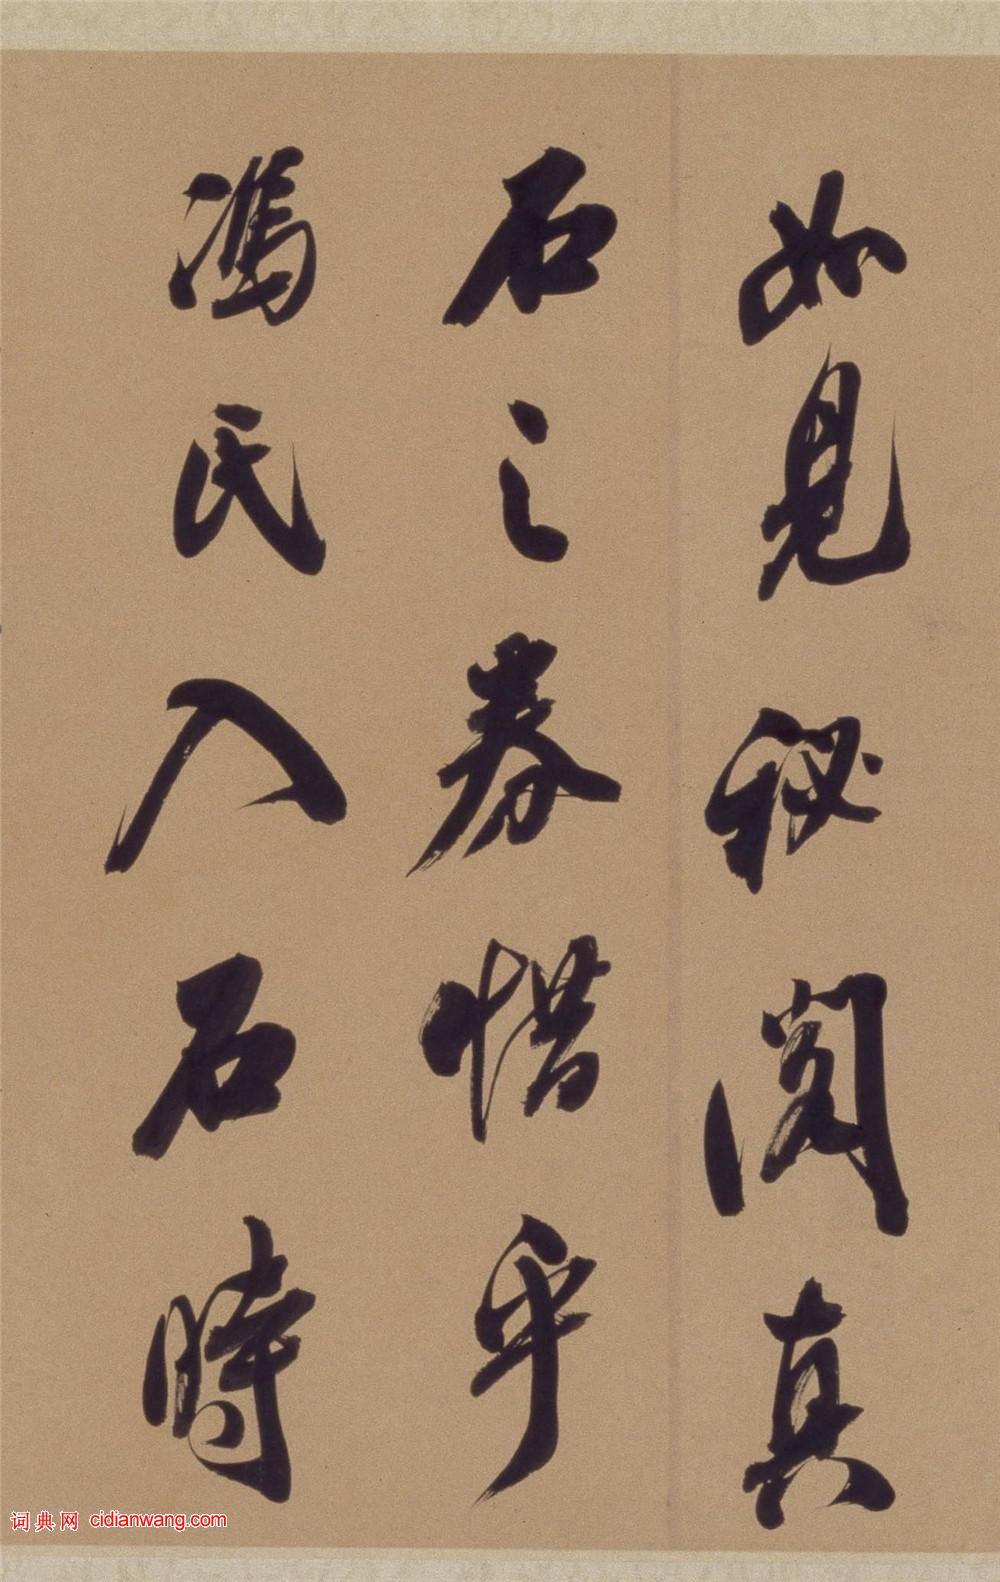 如見秘閣真
石之券惜乎
馮氏入石時
词典网 cidianwang.com